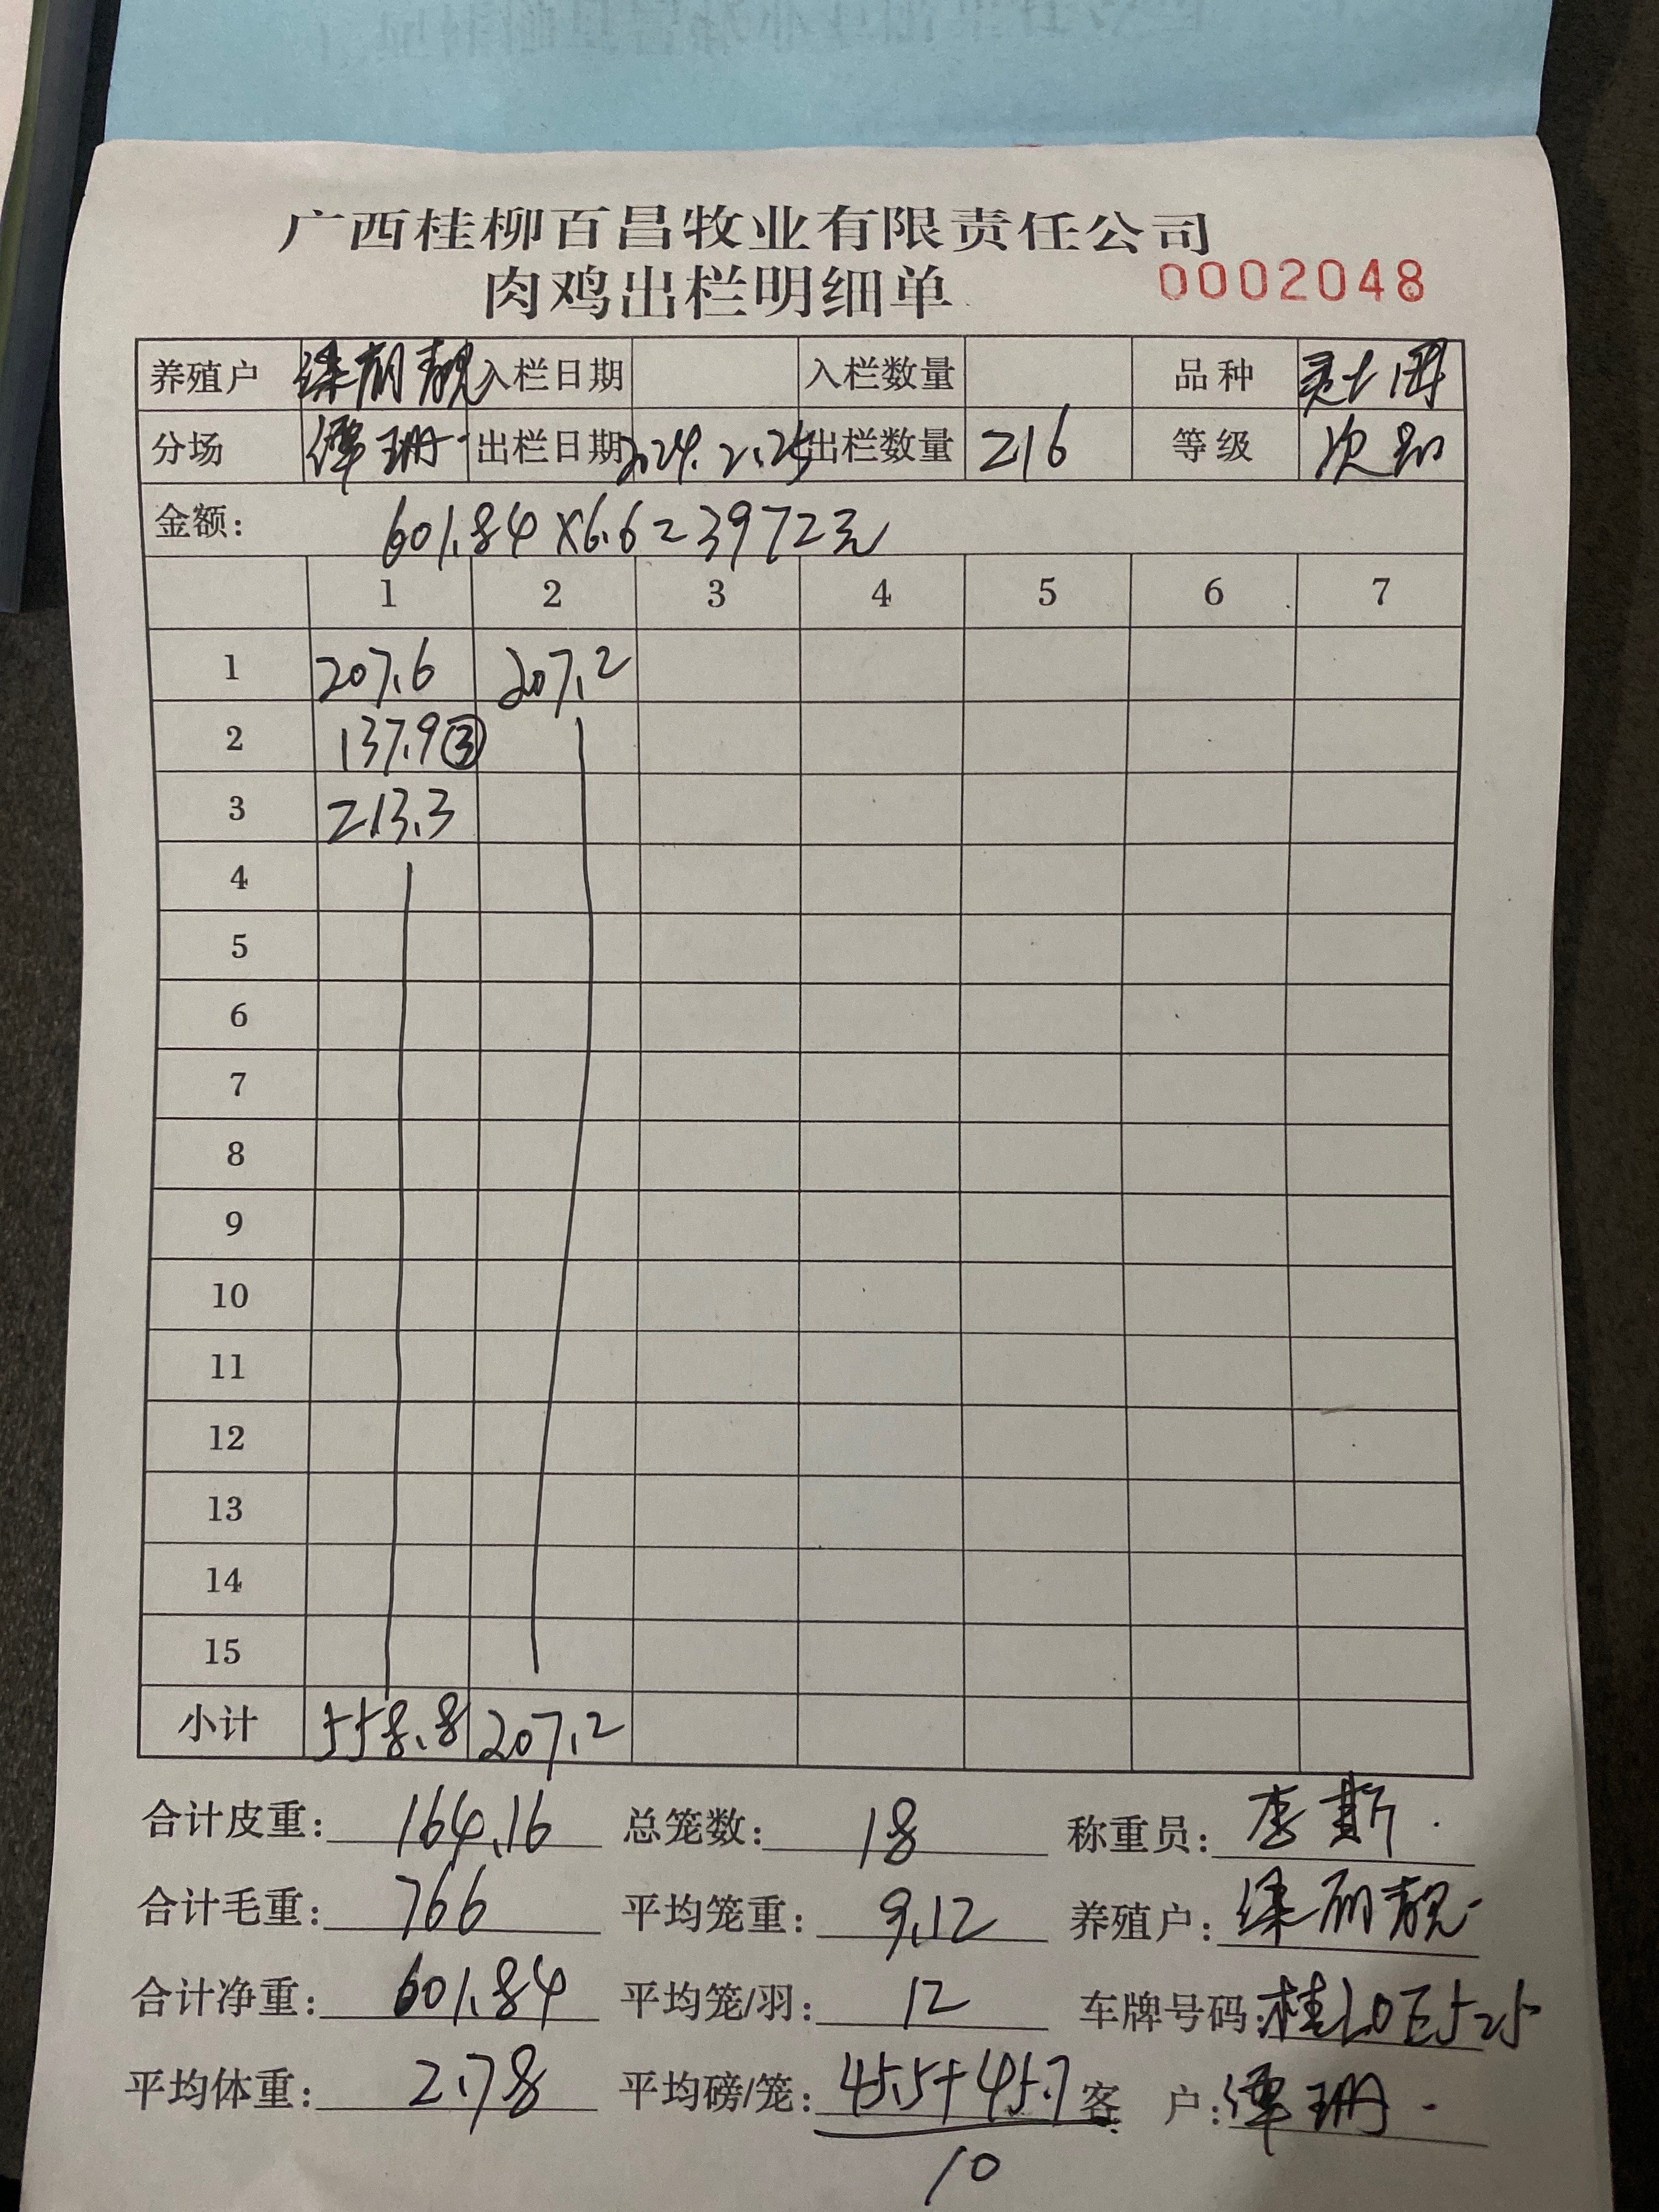 广西桂柳百昌牧业有限责任公司
肉鸡出栏明细单 0002048
养殖户 入栏日期 入栏数量 品种
分场 谭珊 出栏日期 2024.2.25 出栏数量 216 等级 次
金额: 601.84×6.6=3972元
1 2 3 4 5 6 7
1 207.6 207.2
2 137.9③
3 213.3
4
5
6
7
8
9
10
11
12
13
14
15
小计 558.8 207.2
合计皮重: 164.16 总笼数: 18 称重员: 李
合计毛重: 766 平均笼重: 9.12 养殖户:
合计净重: 601.84 平均笼/羽: 12 车牌号码:桂L0E525
平均体重: 2.78 平均磅/笼: 45.5+45.7 客 户: 谭珊
10